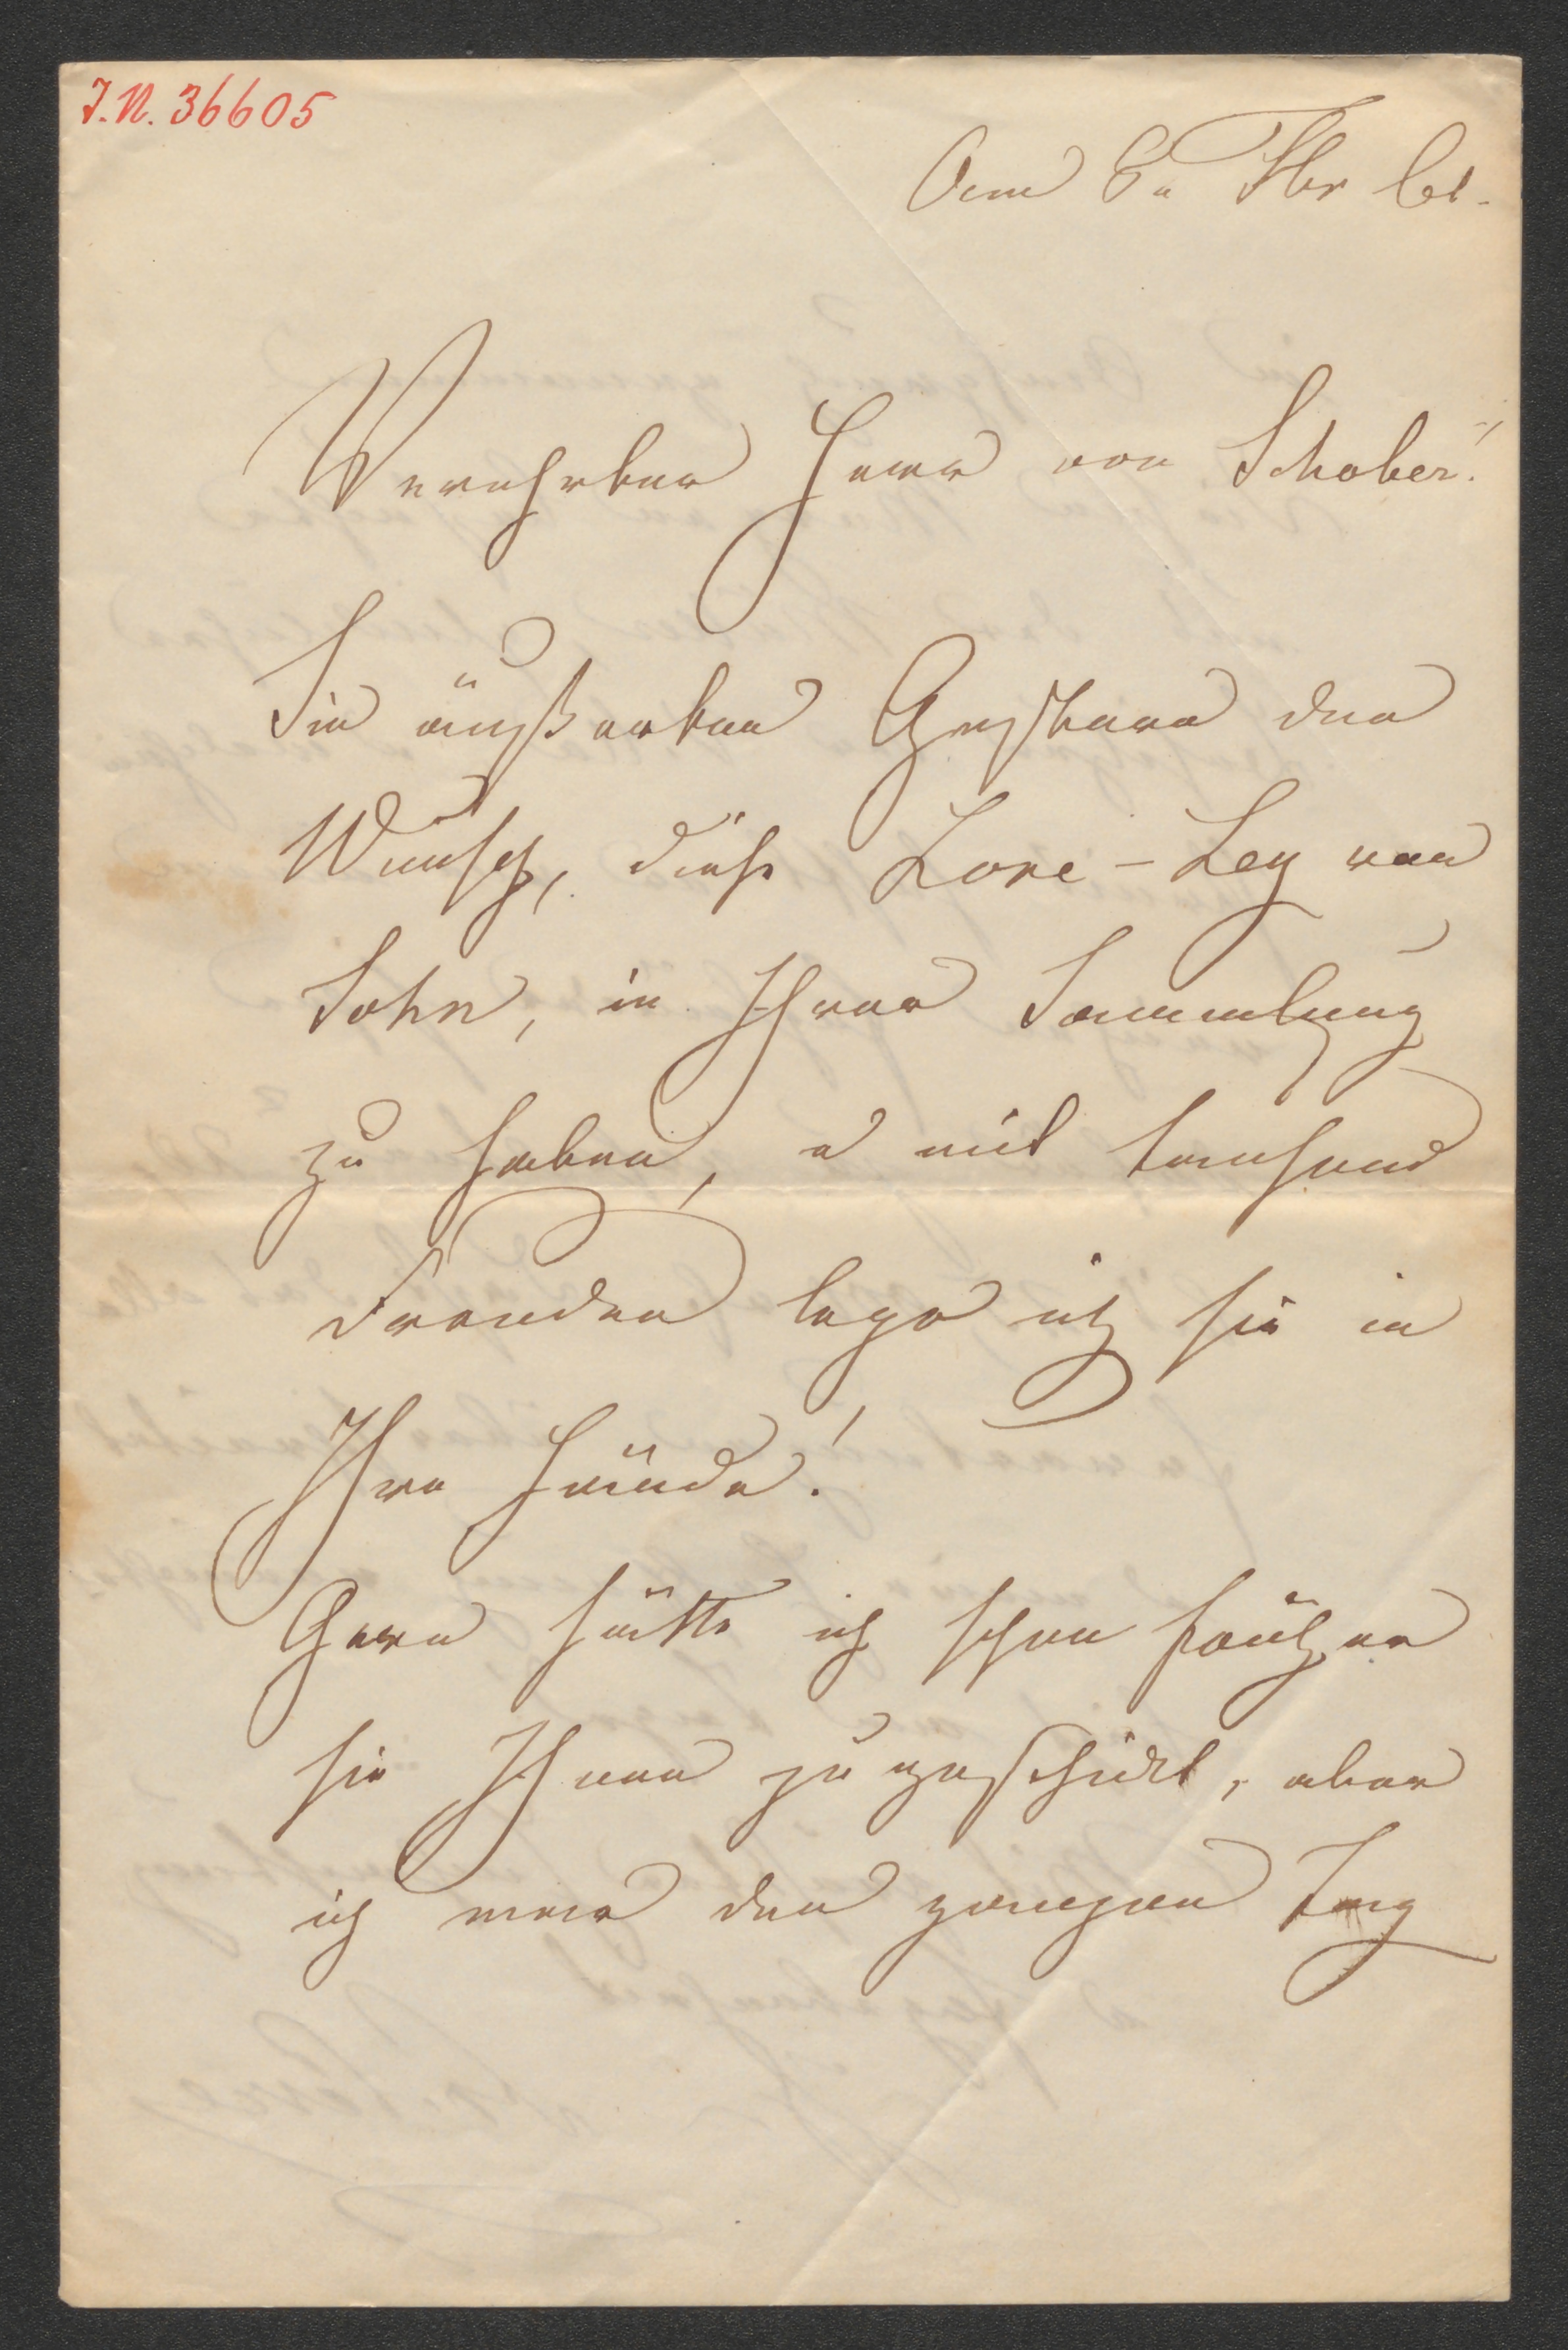 J.N. 36605
Verehrter Herr von Schober!
Sie äußerten Gestern den
Wunsch, diese Lore-Ley von
Sohn, in Ihrer Sammlung
zu haben, u mit tausend
Freuden lege ich sie in
Ihre Hände!
Gern hätte ich schon früher
sie Ihnen zugeschickt, aber
ich war den ganzen Tag